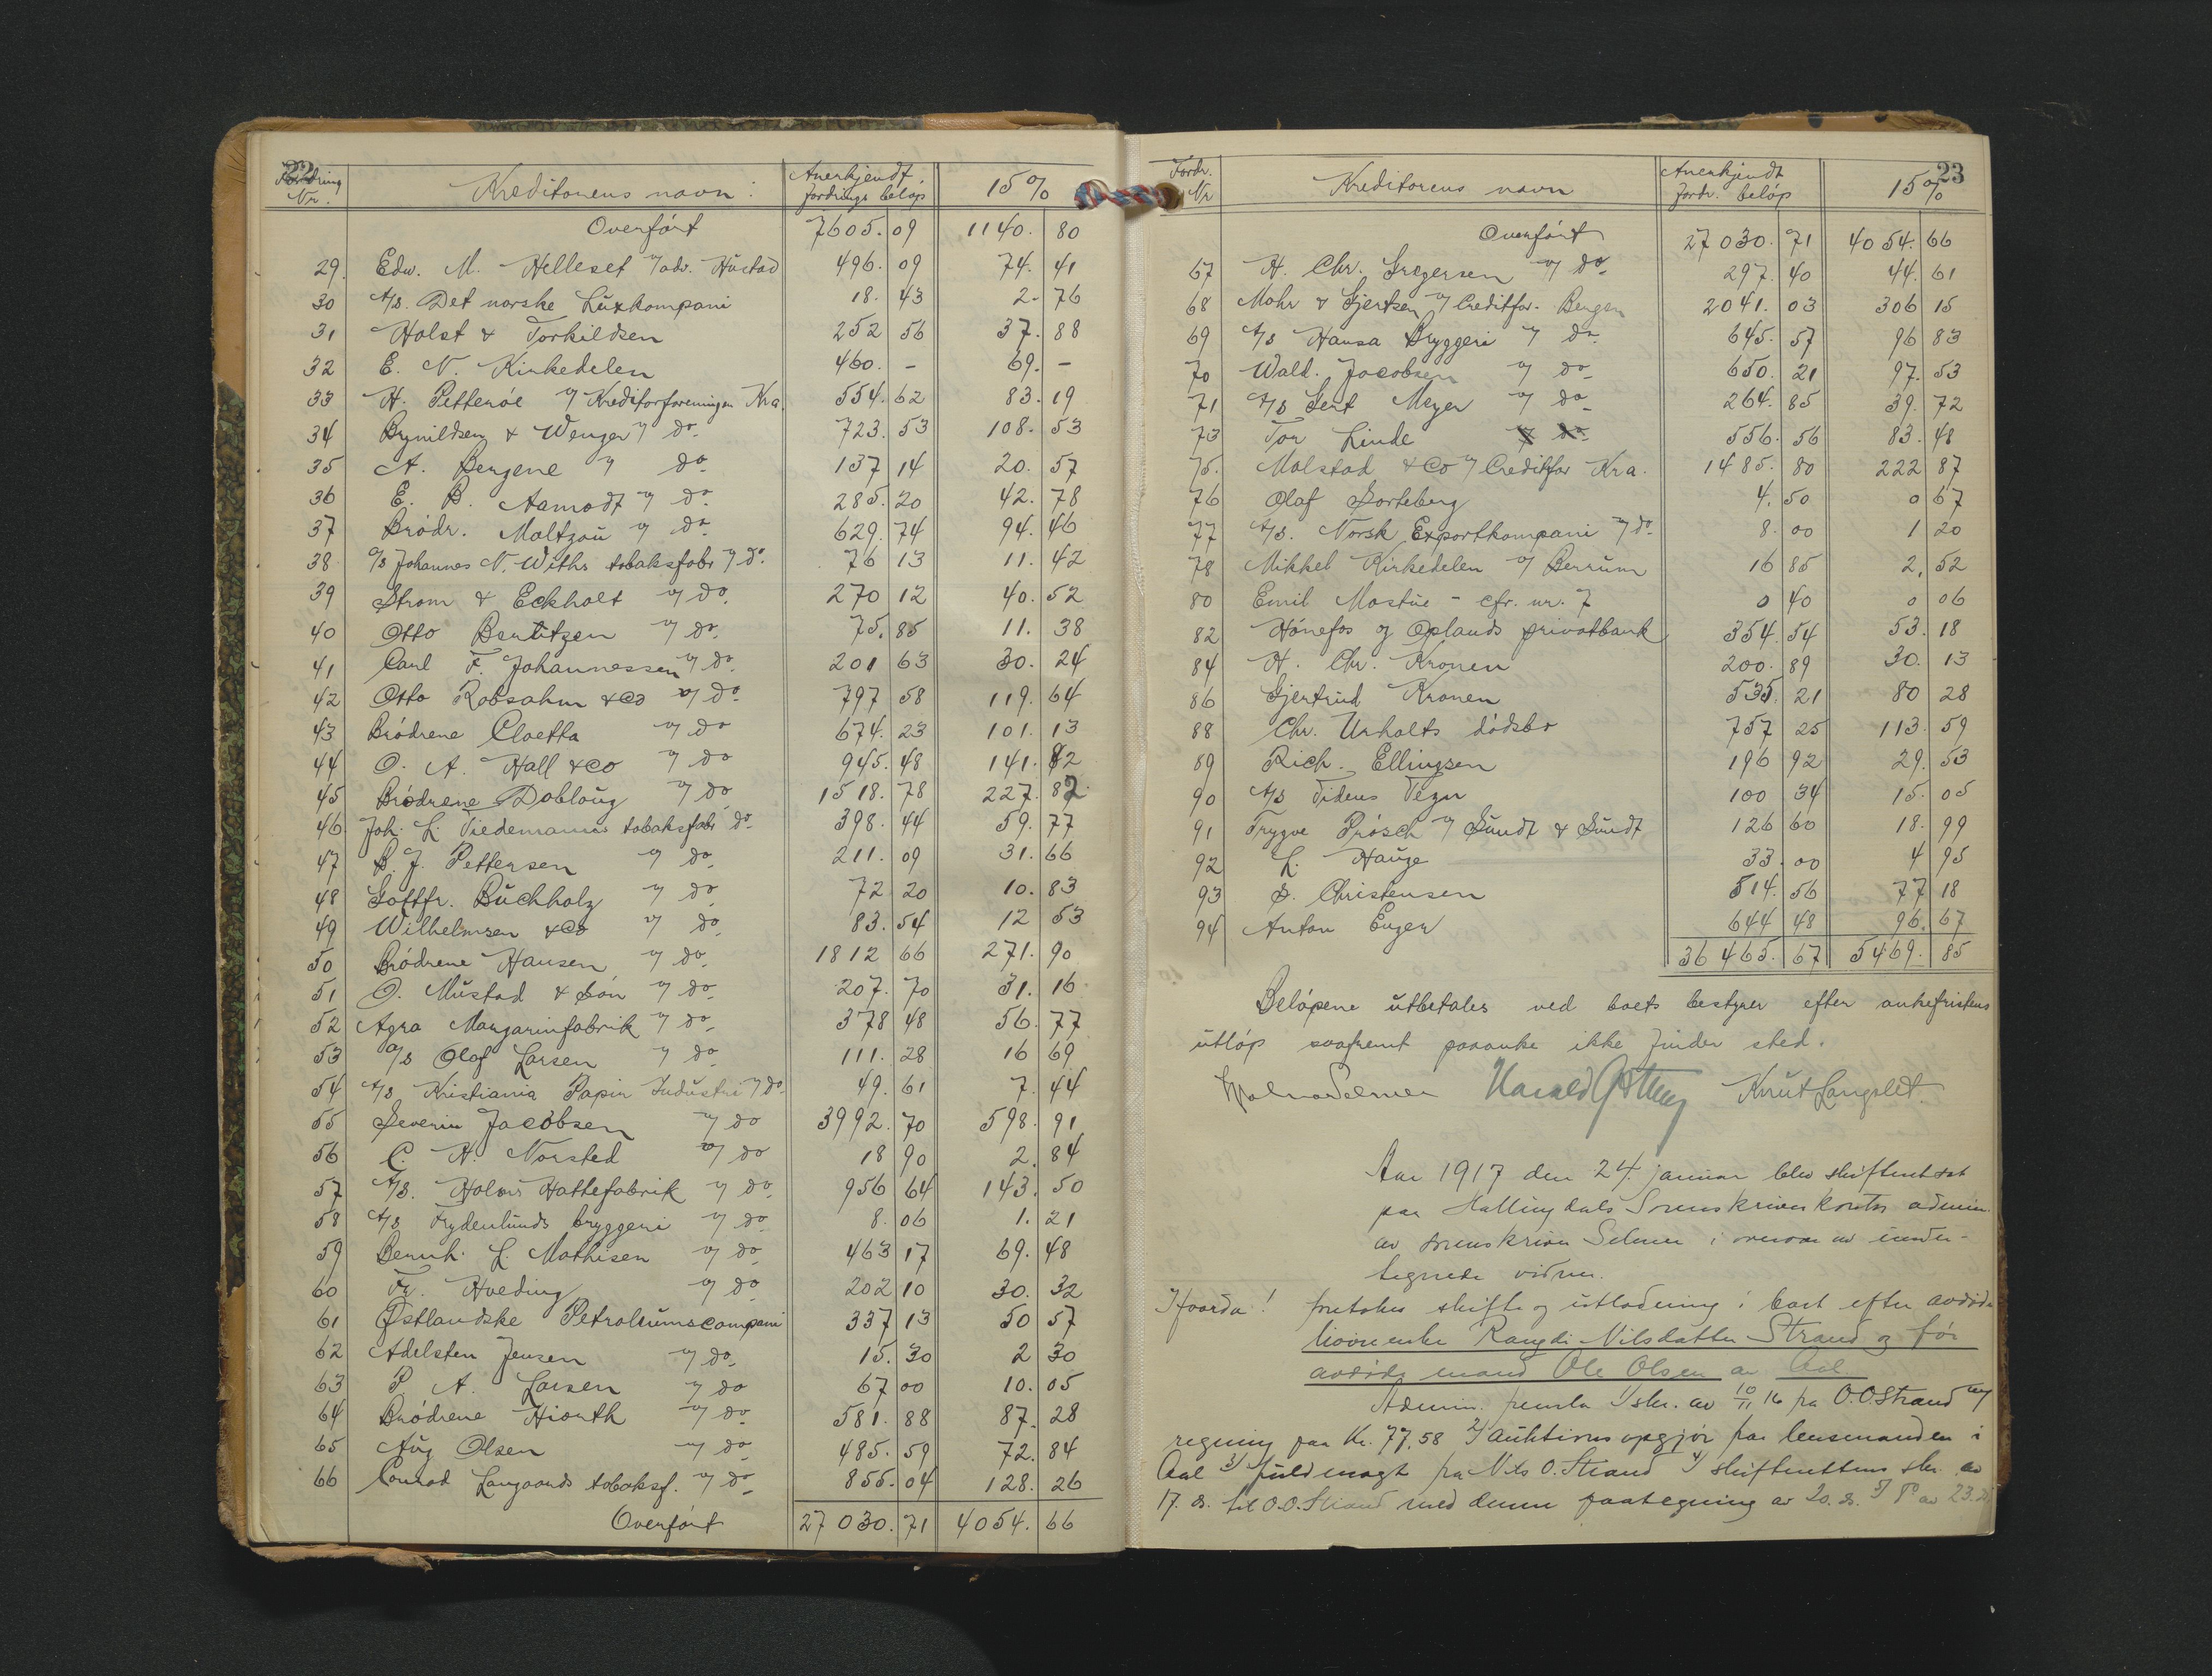 22
Fordring Nr. Kreditorens navn: Anerkjendt fordrings beløp 15%
Overført 7605.09 1140.80
29. Edv. M. Helleset v/ adv. Hustad 496.09 74.41
30 A/S. Det norske Luxkompani 18.43 2.76
31 Holst & Torkildsen 252 56 37.88
32 E. N. Kirkedelen 460. - 69. -
33 H. Petterøe v/ Kreditorforeningen Kra. 554.62 83.19
34 Brynildsen & Wenger v/ do. 723.53 108.53
35 A. Bergene v/ do. 137 14 20.57
36 E. B. Aamodt v/ do. 285.20 42.78
37 Brødr. Moltzau v/ do. 629.74 94.46
38 A/S Johannes N. Withs tobaksfabr v/ do. 76 13 11.42
39 Strøm & Eckholt v/ do. 270 12 40.52
40 Otto Berntzen v/ do. 75.85 11.38
41 Carl F. Johannessen v/ do. 201 63 30.24
42 Otto Robsahm & Co v/ do. 797 58 119.64
43 Brødrene Cloetta v/ do 674.23 101.13
44 O. A. Hall & Co v/ do 945.48 141.82
45 Brødrene Dobloug v/ do 1518.78 227.82
46 Joh. L. Tiedemanns tobaksfabr do. 398.44 59.77
47 B. J. Pettersen v/ do. 211.09 31.66
48 Gottfr. Buchholz v/ do. 72 20 10.83
49 Wilhelmsen & Co v/ do. 83.54 12 53
50 Brødrene Hansen v/ do. 1812 66 271.90
51 O. Mustad & Søn v/ do. 207.70 31.16
52 Agra Margarinfabrik v/ do. 378 48 56.77
53 A/S Olaf Larsen v/ do. 111.28 16 69
54 A/S Kristiania Papir Industri v/ do. 49.61 7.44
55 Severin Jacobsen v/ do 3992.70 598.91
56 C. H. Norsted v/ do 18 90 2.84
57 A/S. Holms Hattefabrik v/ do. 956 64 143.50
58 A/S Frydenlunds bryggeri v/ do. 8.06 1.21
59 Bernh. L. Mathisen v/ do. 463 17 69.48
60 Fr. Hveding v/ do. 202 10 30.32
61 Østlandske Petroleumscompani 337 13 50 57
62 Adelsten Jensen v/ do. 15.30 2 30
63 P. A. Larsen v/ do 67 00 10.05
64 Brødrene Hiorth v/ do. 581.88 87.28
65 Aug Olsen v/ do. 485.59 72.84
66 Conrad Langaards tobaksf. v/ do. 855.04 128.26
Overført 27030.71 4054.66
23
Fordr. Nr Kreditorens navn Anerkjendt fordr. beløp 15%
Overført 27030.71 4054.66
67 H. Chr. Gregersen v/ do. 297.40 44.61
68 Mohr & Gjertsen v/ Creditfor. Bergen 2041.03 306 15
69 A/S Hansa Bryggeri v/ do. 645.57 96 83
70 Wald. Jacobsen v/ do. 650.21 97.53
71 A/S Gert Meyer v/ do 264.85 39.72
73 Tor Linde v/ do. 556.56 83.48
75. Molstad & Co v/ Creditfor Kra. 1485.80 222 87
76 Olaf Gorteberg 4.50 0 67
77 A/S. Norsk Exportkompani v/ do. 8.00 1 20
78 Mikkel Kirkedelen v/ Berrum 16 85 2.52
80 Emil Mostue - cfr. nr. 7 0 40 0 06
82 Hønefos og Oplands privatbank 354.54 53.18
84 H. Chr. Kronen 200.89 30.13
86 Gjertrud Kronen 535.21 80 28
88 Chr. Urholts dødsbo 757 25 113.59
89 Rich. Ellingsen 196 92 29.53
90 A/S Tidens Tegn 100 34 15.05
91 Trygve Prøsch v/ Sundt & Sundt 126 60 18.99
92 L. Hauge 33.00 4 95
93 S. Christensen 514.56 77 18
94 Anton Enger 644 48 96.67
36465.67 5469.85
Beløpene utbetales ved boets bestyrer efter ankefristens
utløp saafremt paaanke ikke finder sted.
Selmer Harald Knut Langslet.
Aar 1917 den 24. januar blev skifteret sat
paa Hallingdals Sorenskriverkontor admin.
av sorenskriver Selmer i overvær av under-
tegnede vidner.
Hvorda! foretokes skifte og utlodning i boet efter avdøde
Rangdi Nilsdatter Strand og før
avdøde mand Ole Olsen av Aal
Admin. fremla 1/ skr. av 10/11 16 fra O.O. Strand m/
regning paa Kr. 77,58 2/ Auktionsopgjør fra lensmanden i
Aal 3/ fuldmagt fra Nils O. Strand 4/ skifterettens skr. av
17. ds. til O.O. Strand med dennes paategning av 20. ds. 5/ av 23. ds.